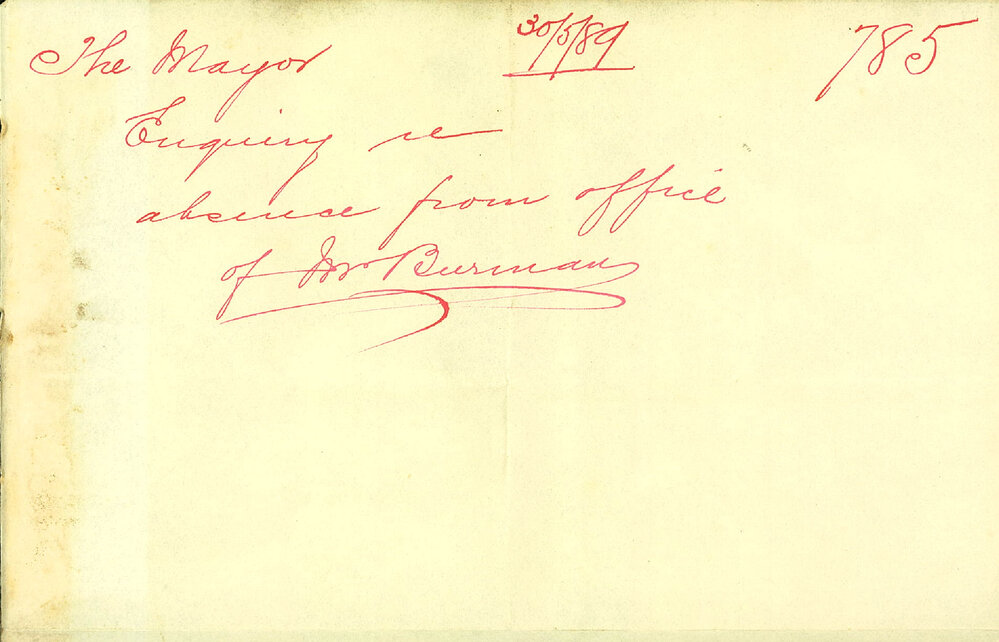 The Mayor 30/5/89 785
Enquiry re
absence from office
of Mr Burman